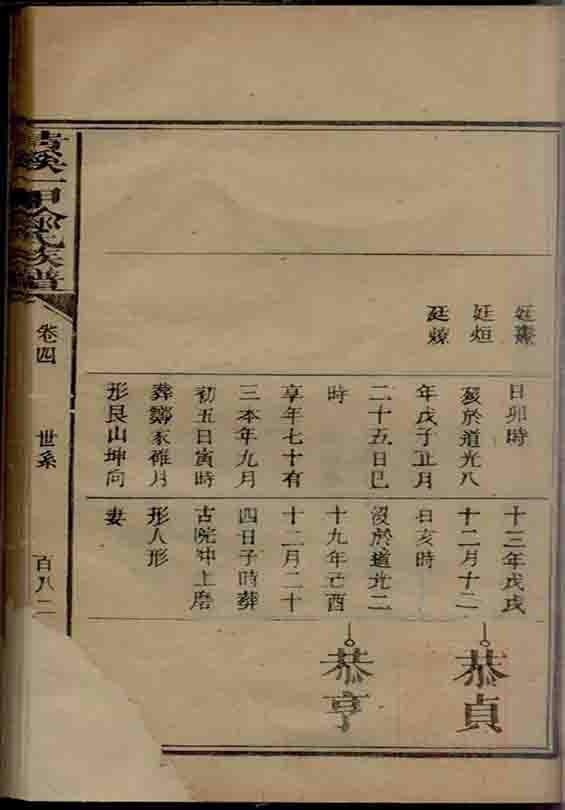 廷
廷烜
廷燎
日卯時
歿於道光八
年戊子正月
二十五日巳
時
享年七十有
三本年九月
初五日寅時
葬鄭家碓月
形艮山坤向
十三年戊戌
十二月十二
日亥時
歿於道光二
十九年己酉
十二月二十
四日子時葬
古院冲上磨
形人形
妻
恭貞
恭亨
溪一甲鄭氏族譜
卷四
世系
百八二